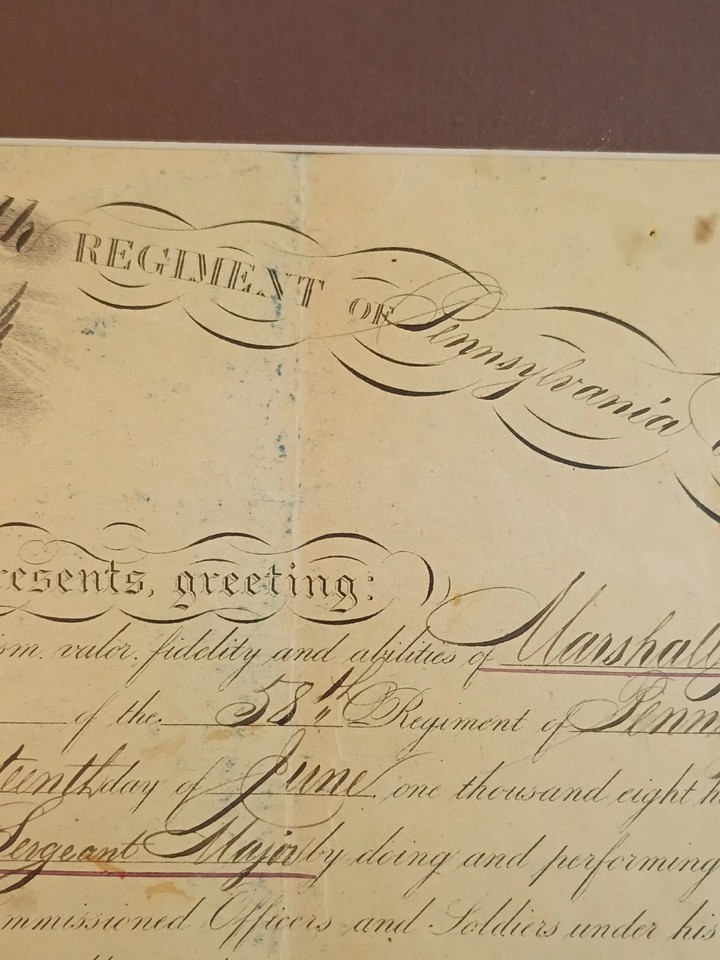 th REGIMENT OF Pennsylvania
resents, greeting:
ism. valor. fidelity and abilities of Marshall
of the 58th Regiment of Penn
teenth day of June one thousand eight h
Sergeant Major by doing and performing
mmissioned Officers and Soldiers under his